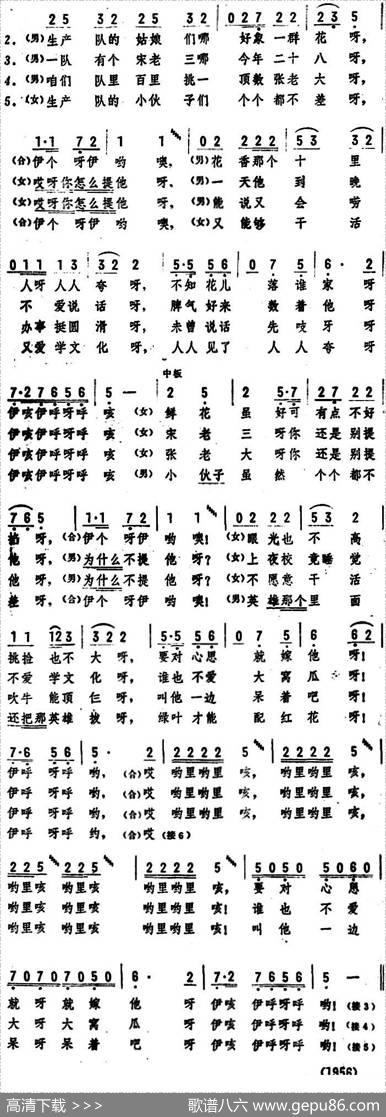 25 32 25 32 | 027 22 (23) 5 |
2.(男)生产 队的 姑娘 们哪 好象一群 花 呀,
3.(男)一队 有个 宋老 三哪 今年二十 八 呀,
4.(男)咱们 队里 百里 挑一 顶数张老 大 呀,
5.(女)生产 队的 小伙 子们 个个都不 差 呀,
1·1 72 | 1 1 | 02 222 | 53 3 |
(合)伊个 呀伊 哟 噢,(男)花 香那个 十 里
(女)哎呀你怎么提他 呀、(男)一 天他 到 晚
(女)哎呀你怎么提他 呀,(男)能 说又 会 唠
(合)伊个 呀伊 哟 噢,(女)又 能够 干 活
011 13 | 32 2 | 5·5 56 | 0 7 5 | 6 · 2 |
人呀 人人 夸 呀, 不知 花儿 落 谁 家 呀
不 爱说 话 呀, 脾气 好来 数 着 他 呀
办事 挺圆 滑 呀, 未曾 说话 先 吱 牙 呀
又爱 学文 化 呀, 人人 见了 人 人 夸 呀
中板
7·2 7656 | 5 — | 2 5 | 2 5·7 | 27 22 |
伊咳伊呼呀呼 咳 (女)鲜 花 虽 好可 有点 不好
伊咳伊呼呀呼 咳 (女)宋 老 三 呀你 还是 别提
伊咳伊呼呀呼 咳 (女)张 老 大 呀你 还是 别提
伊咳伊呼呀呼 咳 (男)小 伙子 虽 然 个个 都不
(76) 5 | 1·1 72 | 1 1 | 02 02 | 53 2 |
掐 呀,(合)伊个 呀伊 哟 噢!(女)眼 光也 不 高
他 呀,(男)为什么不提 他 呀?(女)上 夜校 竟睡 觉
他 呀,(男)为什么不提 他 呀?(女)不 愿意 干 活
差 呀,(合)伊个 呀伊 哟 噢!(男)英 雄那个 里 面
11 123 | 322 2 | 5·5 56 | 0 7 5 | 6 (62) |
挑捡 也不 大 呀, 要对 心思 就 嫁 他 呀!
不爱 学文 化 呀, 谁也 不爱 大 窝 瓜 呀!
吹牛 能顶 仨 呀, 叫他 一边 呆 着 吧 呀!
还把那英雄 拔 呀, 绿叶 才能 配 红 花 呀!
7·6 56 | 5· 2 | 2222 5 | 2222 5 |
伊呼 呀呼 哟,(合)哎 哟里哟里 咳, 哟里哟里 咳,
伊呼 呀呼 哟,(合)哎 哟里哟里 咳, 哟里哟里 咳,
伊呼 呀呼 哟,(合)哎 哟里哟里 咳, 哟里哟里 咳,
伊呼 呀呼 约,(合)哎(接6)
225 225 | 2222 5 | 5050 5060 |
哟里咳 哟里咳 哟里哟里 咳, 要 对 心 思
哟里咳 哟里咳 哟里哟里 咳! 谁 也 不 爱
哟里咳 哟里咳 哟里哟里 咳! 叫 他 一 边
70707050 | 6 · 2 | 7·2 7656 | 5 — ‖
就 呀 就 嫁 他 呀 伊咳 伊呼呀呼 哟!(接3)
大 呀 大 窝 瓜 呀 伊咳 伊呼呀呼 哟!(接4)
呆 呀 呆 着 吧 呀 伊咳 伊呼呀呼 哟!(接5)
(1956)
高清下载 >>> 歌谱八六 www.gepu86.com